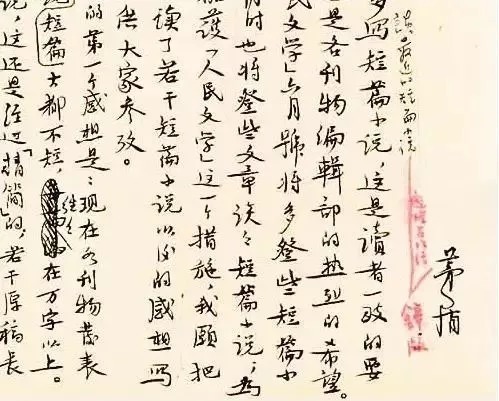 茅盾
談最近的短篇小说
多寫短篇小说，这是讀者一致的要
是各刊物编輯部的热烈的希望。
民文学」六月號将多登些短篇小
时也将登些文章谈々短篇小说，为
护「人民文学」这一个措施，我願把
读了若干短篇小说以后的感想写
供大家参攷。
的第一个感想是：现在各刊物发表
短篇大都不短，往往在万字以上。
说，这还是经过「精简」的，若干原稿长